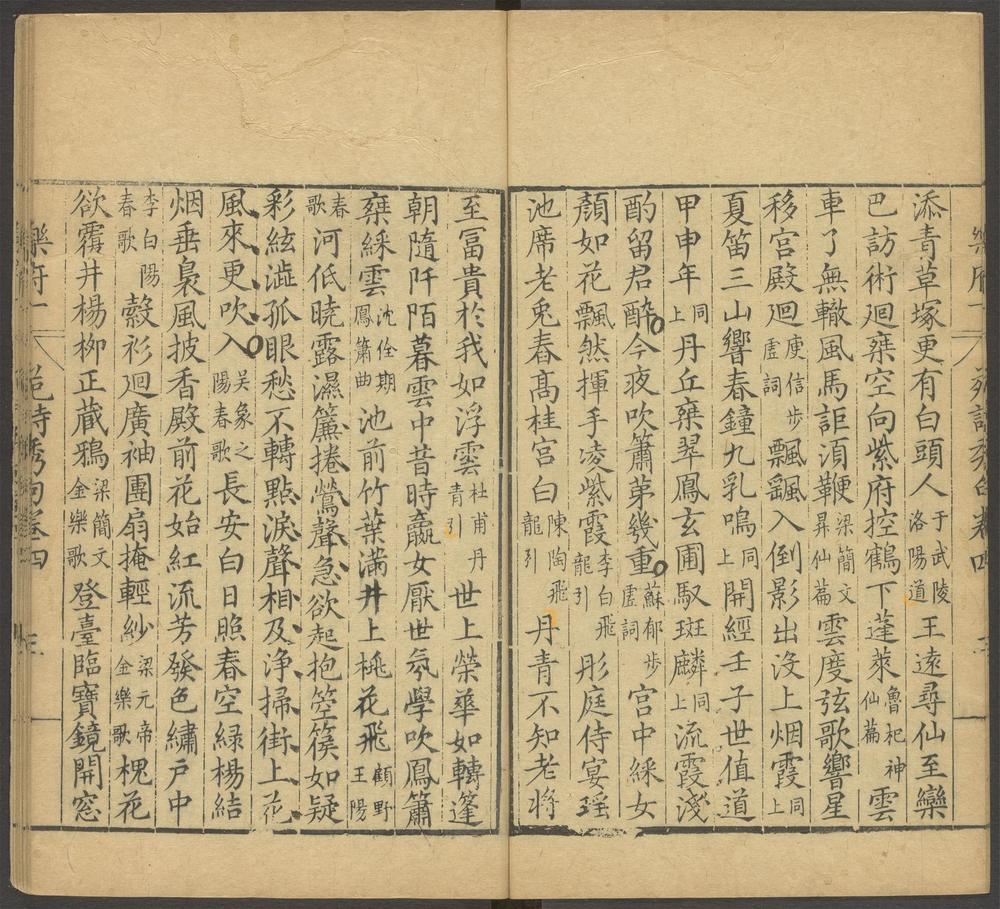 添青草塚更有白頭人于武陵洛陽道王遠尋仙至欒
巴訪術廻椉空向紫府控鶴下蓬萊魯祀神仙萹雲
車了無轍風馬詎須鞭梁簡文昇仙萹雲度弦歌響星
移宮殿廻庾信步虗詞飄飖入倒影出沒上烟霞同上
夏笛三山響春鐘九乳鳴同上開經壬子世值道
甲申年同上丹丘椉翠鳳玄圃馭斑麟同上流霞淺
酌留君醉今夜吹簫苐幾重蘇郁步虗詞宮中綵女
顏如花飄然揮手凌紫霞李白飛龍引彤庭侍宴瑶
池席老兎舂髙桂宮白陳陶飛龍引丹青不知老將
至冨貴於我如浮雲杜甫丹青引世上榮華如轉篷
朝隨阡陌暮雲中昔時嬴女厭世氛學吹鳳簫
椉綵雲沈佺期鳳簫曲池前竹葉滿井上桃花飛顧野王陽
春歌河低曉露濕簾捲鶯聲急欲起抱箜篌如疑
彩絃澁孤眼愁不轉點淚聲相及淨掃街上花
風來更吹入吳象之陽春歌長安白日照春空緑楊結
烟垂裊風披香殿前花始紅流芳發色繡戸中
李白陽春歌縠衫廻廣袖團扇掩輕紗梁元帝金樂歌槐花
欲覆井楊栁正蔵鴉梁簡文金樂歌登臺臨寶鏡開窓